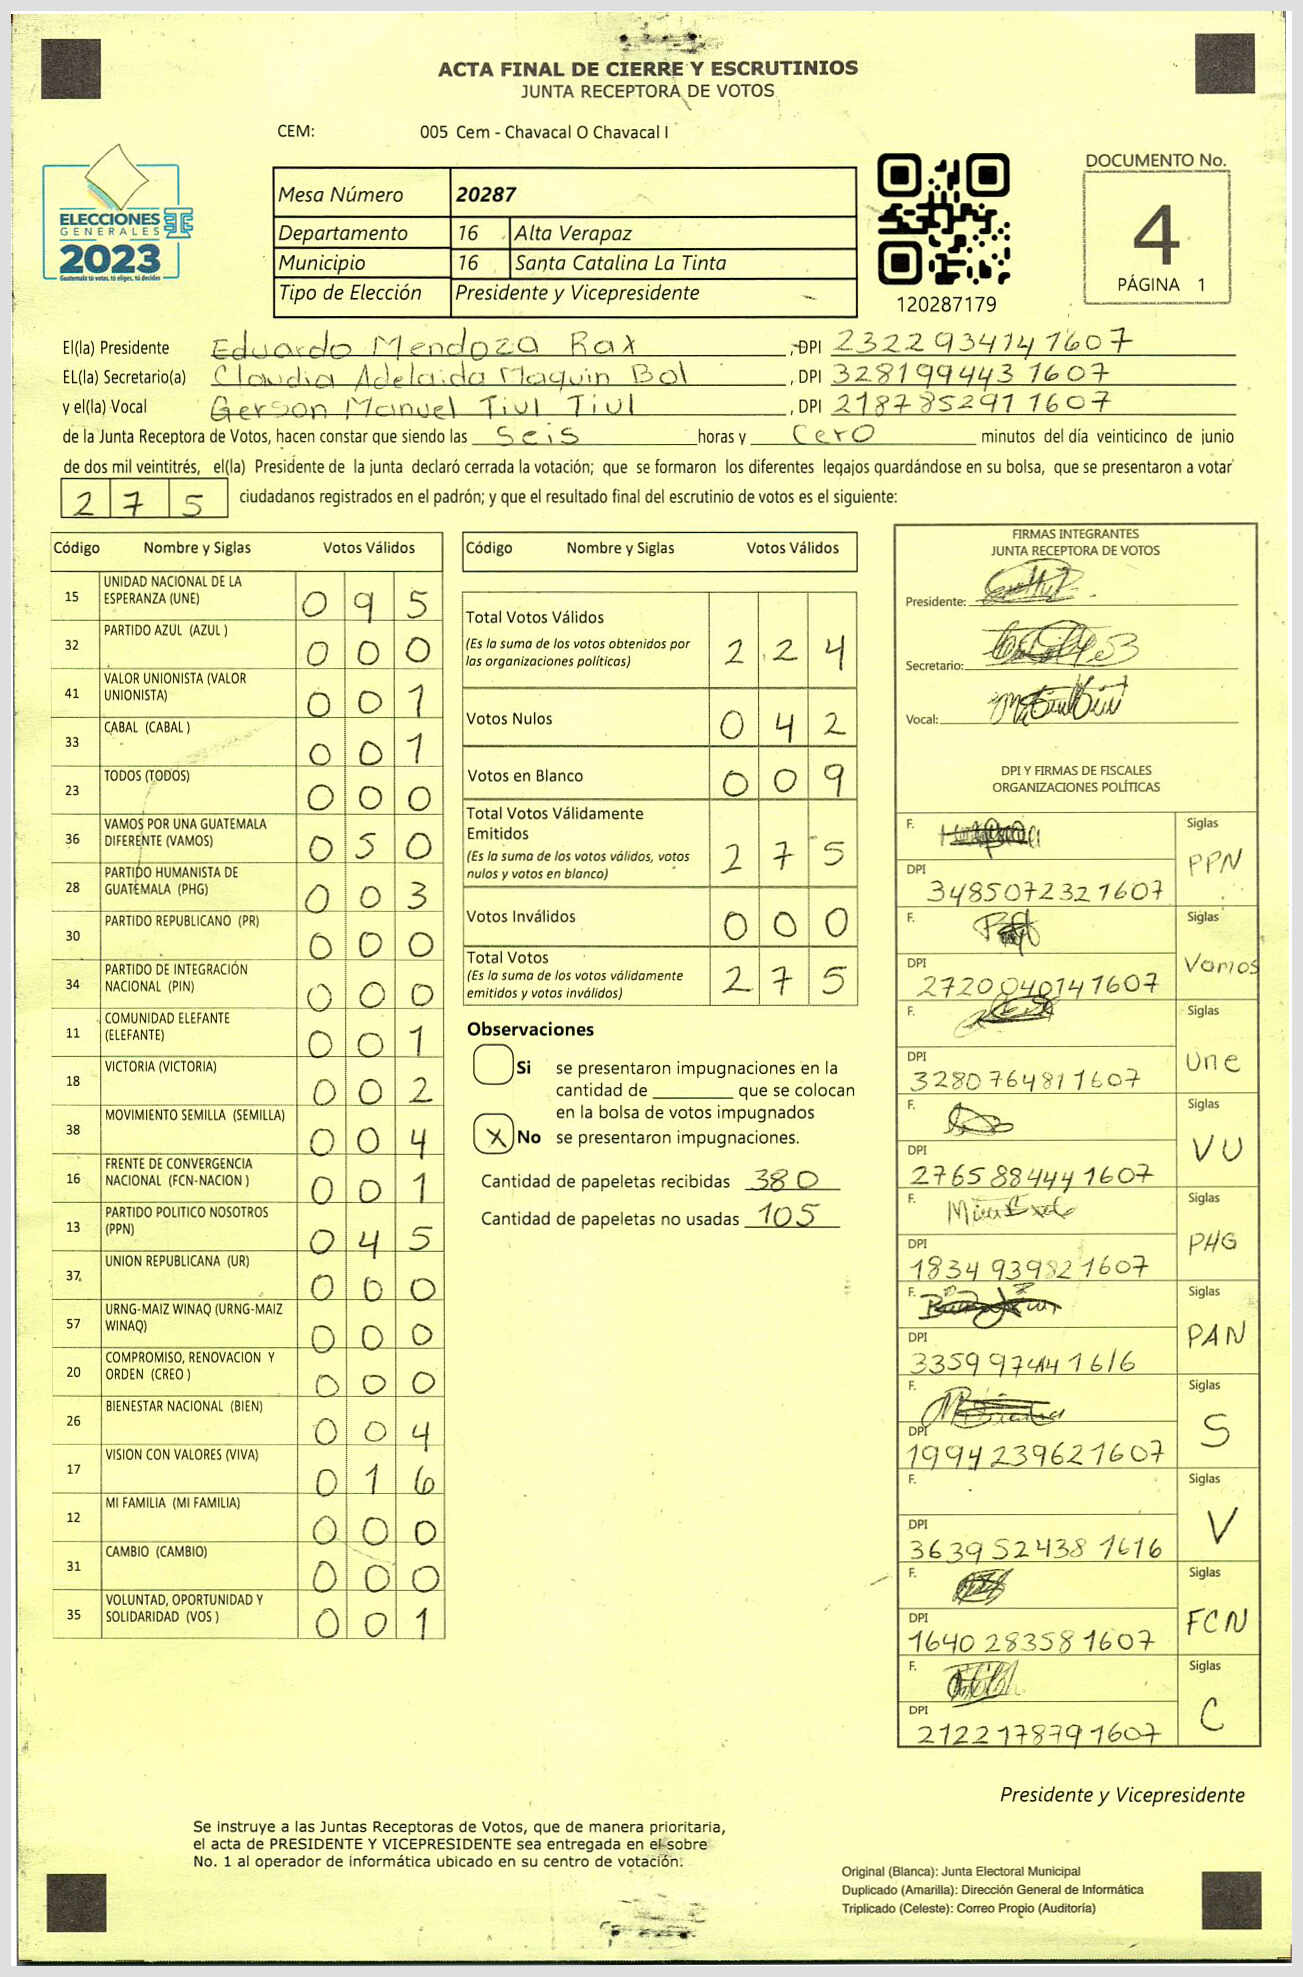 ACTA FINAL DE CIERRE Y ESCRUTINIOS
JUNTA RECEPTORA DE VOTOS
CEM: 005 Cem - Chavacal O Chavacal I
ELECCIONES
GENERALES
2023
Guatemala tú votas, tú eliges, tú decides
Mesa Número 20287
Departamento 16 Alta Verapaz
Municipio 16 Santa Catalina La Tinta
Tipo de Elección Presidente y Vicepresidente
120287179
DOCUMENTO No.
4
PÁGINA 1
El(la) Presidente Eduardo Mendoza Rax , DPI 2322934141607
EL(la) Secretario(a) Claudia Adelaida Maquin Bol , DPI 3281994431607
y el(la) Vocal Gerson Manuel Tiul Tiul , DPI 2187852911607
de la Junta Receptora de Votos, hacen constar que siendo las seis horas y cero minutos del día veinticinco de junio
de dos mil veintitrés, el(la) Presidente de la junta declaró cerrada la votación; que se formaron los diferentes legajos guardándose en su bolsa, que se presentaron a votar
275 ciudadanos registrados en el padrón; y que el resultado final del escrutinio de votos es el siguiente:
Código Nombre y Siglas Votos Válidos
15 UNIDAD NACIONAL DE LA ESPERANZA (UNE) 095
32 PARTIDO AZUL (AZUL ) 000
41 VALOR UNIONISTA (VALOR UNIONISTA) 001
33 CABAL (CABAL ) 001
23 TODOS (TODOS) 000
36 VAMOS POR UNA GUATEMALA DIFERENTE (VAMOS) 050
28 PARTIDO HUMANISTA DE GUATEMALA (PHG) 003
30 PARTIDO REPUBLICANO (PR) 000
34 PARTIDO DE INTEGRACIÓN NACIONAL (PIN) 000
11 COMUNIDAD ELEFANTE (ELEFANTE) 001
18 VICTORIA (VICTORIA) 002
38 MOVIMIENTO SEMILLA (SEMILLA) 004
16 FRENTE DE CONVERGENCIA NACIONAL (FCN-NACION ) 001
13 PARTIDO POLITICO NOSOTROS (PPN) 045
37 UNION REPUBLICANA (UR) 000
57 URNG-MAIZ WINAQ (URNG-MAIZ WINAQ) 000
20 COMPROMISO, RENOVACION Y ORDEN (CREO ) 000
26 BIENESTAR NACIONAL (BIEN) 004
17 VISION CON VALORES (VIVA) 016
12 MI FAMILIA (MI FAMILIA) 000
31 CAMBIO (CAMBIO) 000
35 VOLUNTAD, OPORTUNIDAD Y SOLIDARIDAD (VOS ) 001
Código Nombre y Siglas Votos Válidos
Total Votos Válidos 224
(Es la suma de los votos obtenidos por
las organizaciones políticas)
Votos Nulos 042
Votos en Blanco 009
Total Votos Válidamente
Emitidos 275
(Es la suma de los votos válidos, votos
nulos y votos en blanco)
Votos Inválidos 000
Total Votos 275
(Es la suma de los votos válidamente
emitidos y votos inválidos)
Observaciones
Si se presentaron impugnaciones en la
cantidad de ________ que se colocan
en la bolsa de votos impugnados
X No se presentaron impugnaciones.
Cantidad de papeletas recibidas 380
Cantidad de papeletas no usadas 105
FIRMAS INTEGRANTES
JUNTA RECEPTORA DE VOTOS
Presidente:
Secretario:
Vocal:
DPI Y FIRMAS DE FISCALES
ORGANIZACIONES POLÍTICAS
F. Siglas PPN
DPI 3485072321607
F. Siglas Vamos
DPI 2720040141607
F. Siglas Une
DPI 3280764811607
F. Siglas VU
DPI 2765884441607
F. Siglas PHG
DPI 1834939821607
F. Siglas PAN
DPI
F. Siglas S
DPI 1994239621607
F. Siglas V
DPI 3639524381616
F. Siglas FCN
DPI 1640283581607
F. Siglas C
DPI 2122178791607
Presidente y Vicepresidente
Se instruye a las Juntas Receptoras de Votos, que de manera prioritaria,
el acta de PRESIDENTE Y VICEPRESIDENTE sea entregada en el sobre
No. 1 al operador de informática ubicado en su centro de votación.
Original (Blanca): Junta Electoral Municipal
Duplicado (Amarilla): Dirección General de Informática
Triplicado (Celeste): Correo Propio (Auditoría)